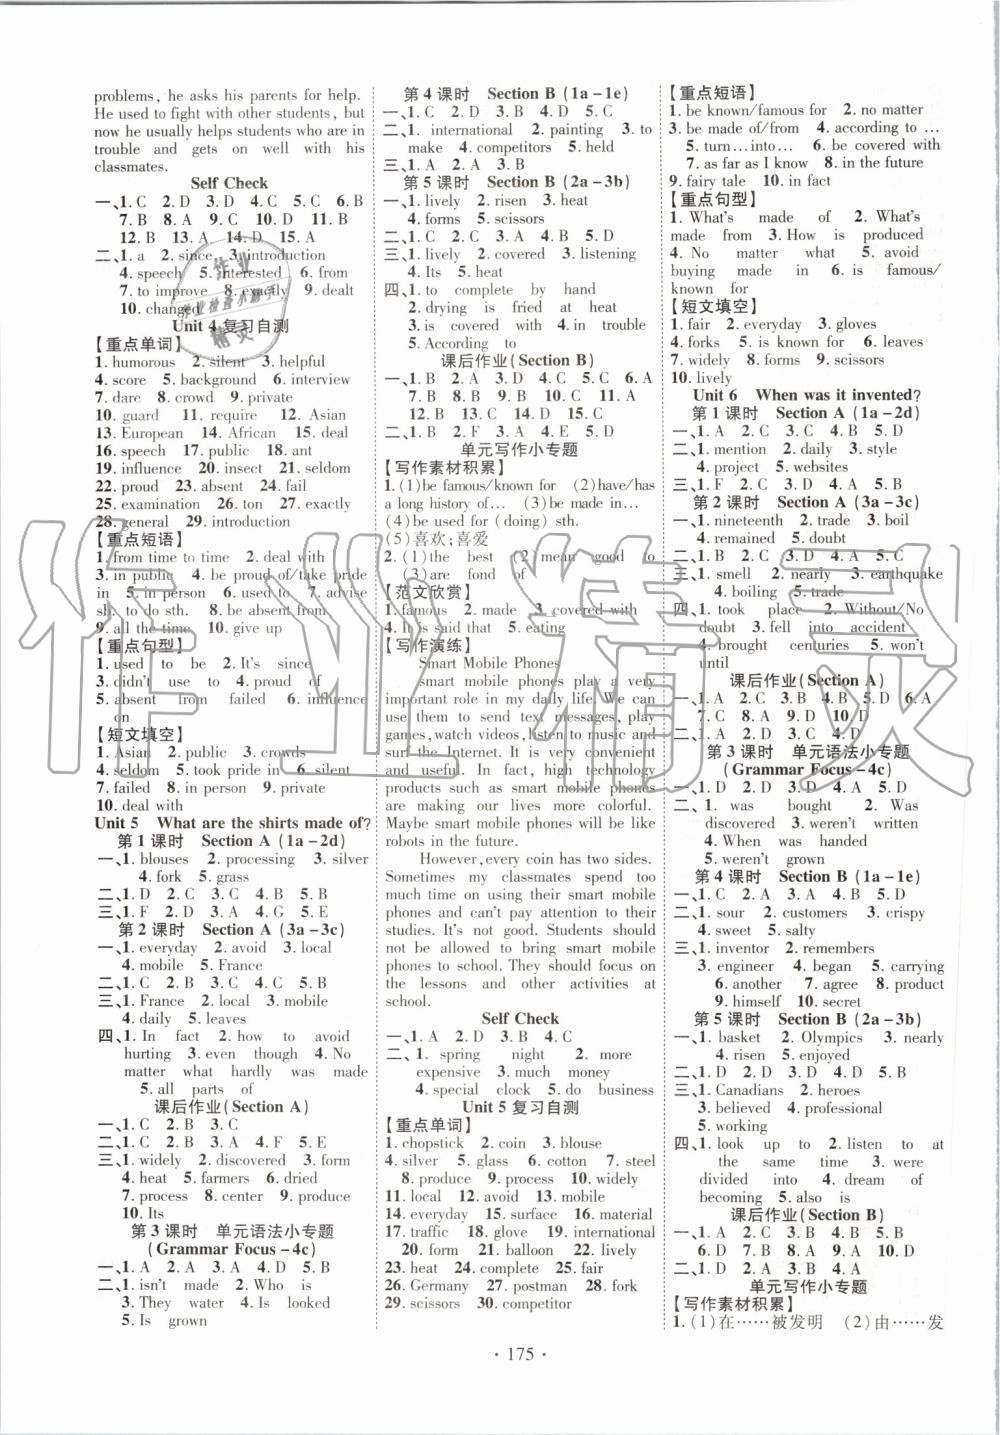 problems, he asks his parents for help.
He used to fight with other students, but
now he usually helps students who are in
trouble and gets on well with his
classmates.
Self Check
一、1. C 2. D 3. D 4. C 5. C 6. B
7. B 8. A 9. C 10. D 11. B
12. B 13. A 14. D 15. A
二、1. a 2. since 3. introduction
4. speech 5. interested 6. from
7. to improve 8. exactly 9. dealt
10. changed
Unit 4 复习自测
【重点单词】
1. humorous 2. silent 3. helpful
4. score 5. background 6. interview
7. dare 8. crowd 9. private
10. guard 11. require 12. Asian
13. European 14. African 15. deal
16. speech 17. public 18. ant
19. influence 20. insect 21. seldom
22. proud 23. absent 24. fail
25. examination 26. ton 27. exactly
28. general 29. introduction
【重点短语】
1. from time to time 2. deal with
3. in public 4. be proud of/take pride
in 5. in person 6. used to 7. advise
sb. to do sth. 8. be absent from
9. all the time 10. give up
【重点句型】
1. used to be 2. It's since
3. didn't use to 4. proud of
5. absent from failed 6. influence
on
【短文填空】
1. Asian 2. public 3. crowds
4. seldom 5. took pride in 6. silent
7. failed 8. in person 9. private
10. deal with
Unit 5 What are the shirts made of?
第 1 课时 Section A (1a-2d)
一、1. blouses 2. processing 3. silver
4. fork 5. grass
二、1. D 2. C 3. C 4. B 5. B
三、1. F 2. D 3. A 4. G 5. E
第 2 课时 Section A (3a-3c)
一、1. everyday 2. avoid 3. local
4. mobile 5. France
二、1. C 2. B 3. C 4. D 5. B
三、1. France 2. local 3. mobile
4. daily 5. leaves
四、1. In fact 2. how to avoid
hurting 3. even though 4. No
matter what hardly was made
5. all parts of
课后作业(Section A)
一、1. C 2. B 3. C
二、1. C 2. B 3. A 4. F 5. E
三、1. widely 2. discovered 3. form
4. heat 5. farmers 6. dried
7. process 8. center 9. produce
10. Its
第 3 课时 单元语法小专题
(Grammar Focus-4c)
一、1. A 2. A 3. A 4. C 5. B
二、1. isn't made 2. Who is
3. They water 4. Is looked
5. Is grown
第 4 课时 Section B (1a-1e)
一、1. C 2. D 3. B 4. D 5. C
二、1. international 2. painting 3. to
make 4. competitors 5. held
三、1. A 2. A 3. B
第 5 课时 Section B (2a-3b)
一、1. lively 2. risen 3. heat
4. forms 5. scissors
二、1. C 2. C 3. A 4. B 5. D
三、1. lively 2. covered 3. listening
4. Its 5. heat
四、1. to complete by hand
2. drying is fried at heat
3. is covered with 4. in trouble
5. According to
课后作业(Section B)
一、1. B 2. A 3. D 4. C 5. C 6. A
7. C 8. B 9. B 10. C 11. A
12. D 13. B 14. D 15. C
二、1. B 2. F 3. A 4. E 5. D
单元写作小专题
【写作素材积累】
1. (1)be famous/known for (2)have/has
a long history of… (3)be made in…
(4)be used for (doing) sth.
(5)喜欢;喜爱
2. (1)the best (2)mean good to
(3)are fond of
【范文欣赏】
1. famous 2. made 3. covered with
4. It is said that 5. eating
【写作演练】
Smart Mobile Phones
Smart mobile phones play a very
important role in my daily life. We can
use them to send text messages, play
games, watch videos, listen to music and
surf the Internet. It is very convenient
and useful. In fact, high technology
products such as smart mobile phones
are making our lives more colorful.
Maybe smart mobile phones will be like
robots in the future.
However, every coin has two sides.
Sometimes my classmates spend too
much time on using their smart mobile
phones and can't pay attention to their
studies. It's not good. Students should
not be allowed to bring smart mobile
phones to school. They should focus on
the lessons and other activities at
school.
Self Check
一、1. A 2. D 3. B 4. C
二、1. spring night 2. more
expensive 3. much money
4. special clock 5. do business
Unit 5 复习自测
【重点单词】
1. chopstick 2. coin 3. blouse
4. silver 5. glass 6. cotton 7. steel
8. produce 9. process 10. widely
11. local 12. avoid 13. mobile
14. everyday 15. surface 16. material
17. traffic 18. glove 19. international
20. form 21. balloon 22. lively
23. heat 24. complete 25. fair
26. Germany 27. postman 28. fork
29. scissors 30. competitor
【重点短语】
1. be known/famous for 2. no matter
3. be made of/from 4. according to …
5. turn…into… 6. be covered with
7. as far as I know 8. in the future
9. fairy tale 10. in fact
【重点句型】
1. What's made of 2. What's
made from 3. How is produced
4. No matter what 5. avoid
buying made in 6. is famous/
known for
【短文填空】
1. fair 2. everyday 3. gloves
4. forks 5. is known for 6. leaves
7. widely 8. forms 9. scissors
10. lively
Unit 6 When was it invented?
第 1 课时 Section A (1a-2d)
一、1. A 2. C 3. C 4. B 5. D
二、1. mention 2. daily 3. style
4. project 5. websites
三、1. F 2. C 3. D 4. B 5. A
第 2 课时 Section A (3a-3c)
一、1. nineteenth 2. trade 3. boil
4. remained 5. doubt
二、1. C 2. B 3. D 4. A 5. C
三、1. smell 2. nearly 3. earthquake
4. boiling 5. trade
四、1. took place 2. Without/No
doubt 3. fell into accident
4. brought centuries 5. won't
until
课后作业(Section A)
一、1. A 2. C 3. B 4. B 5. D 6. A
7. C 8. A 9. D 10. D
二、1. B 2. A 3. D 4. C 5. A
第 3 课时 单元语法小专题
(Grammar Focus-4c)
一、1. D 2. D 3. A 4. A 5. D
二、1. was bought 2. Was
discovered 3. weren't written
4. When was handed
5. weren't grown
第 4 课时 Section B (1a-1e)
一、1. C 2. A 3. A 4. B 5. D
二、1. sour 2. customers 3. crispy
4. sweet 5. salty
三、1. inventor 2. remembers
3. engineer 4. began 5. carrying
6. another 7. agree 8. product
9. himself 10. secret
第 5 课时 Section B (2a-3b)
一、1. basket 2. Olympics 3. nearly
4. risen 5. enjoyed
二、1. D 2. A 3. B 4. D 5. B
三、1. Canadians 2. heroes
3. believed 4. professional
5. working
四、1. look up to 2. listen to at
the same time 3. were
divided into 4. dream of
becoming 5. also is
课后作业(Section B)
一、1. A 2. C 3. B 4. B 5. B
6. D 7. B 8. A 9. A 10. D
二、1. C 2. D 3. A 4. A 5. B
单元写作小专题
【写作素材积累】
1. (1)在……被发明 (2)由……发
· 175 ·
作业精灵